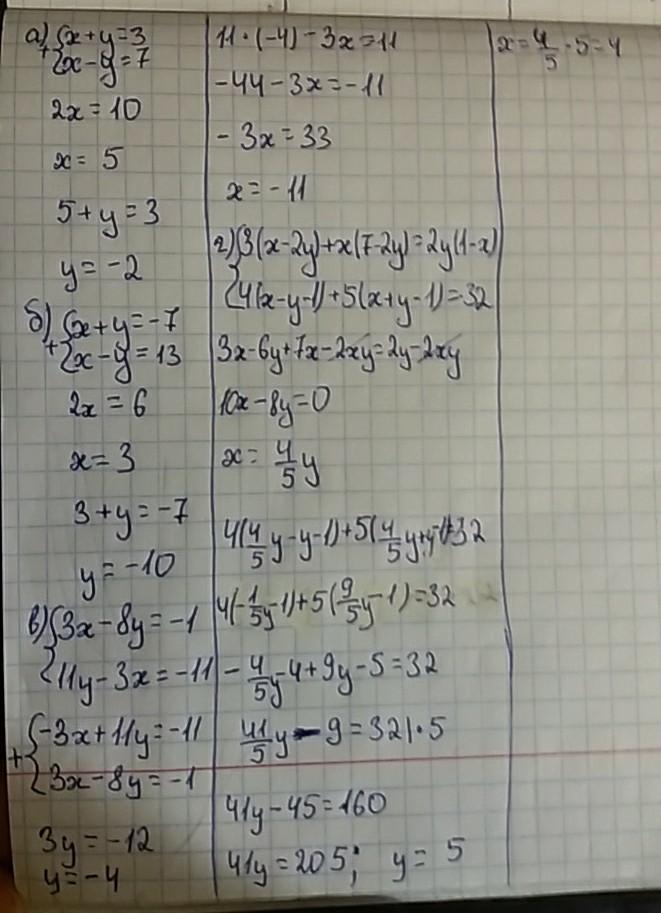 а) {x+y=3
+ {x-y=7
2x = 10
x = 5
5+y=3
y = -2
б) {x+y=-7
+ {x-y=13
2x = 6
x = 3
3+y=-7
y = -10
в) {3x-8y=-1
{11y-3x=-11
{-3x+11y=-11
+ {3x-8y=-1
3y=-12
y=-4
11·(-4)-3x=11
-44-3x=-11
-3x=33
x=-11
г) {3(x-2y)+x(7-2y)=2y(1-x)
{4(x-y-1)+5(x+y-1)=32
3x-6y+7x-2xy=2y-2xy
10x-8y=0
x = 4/5 y
4(4/5 y-y-1)+5(4/5 y+y-1)=32
4(-1/5 y-1)+5(9/5 y-1)=32
-4/5 y-4+9y-5=32
41/5 y-9=32|·5
41y-45=160
41y=205; y=5
x=4/5·5=4